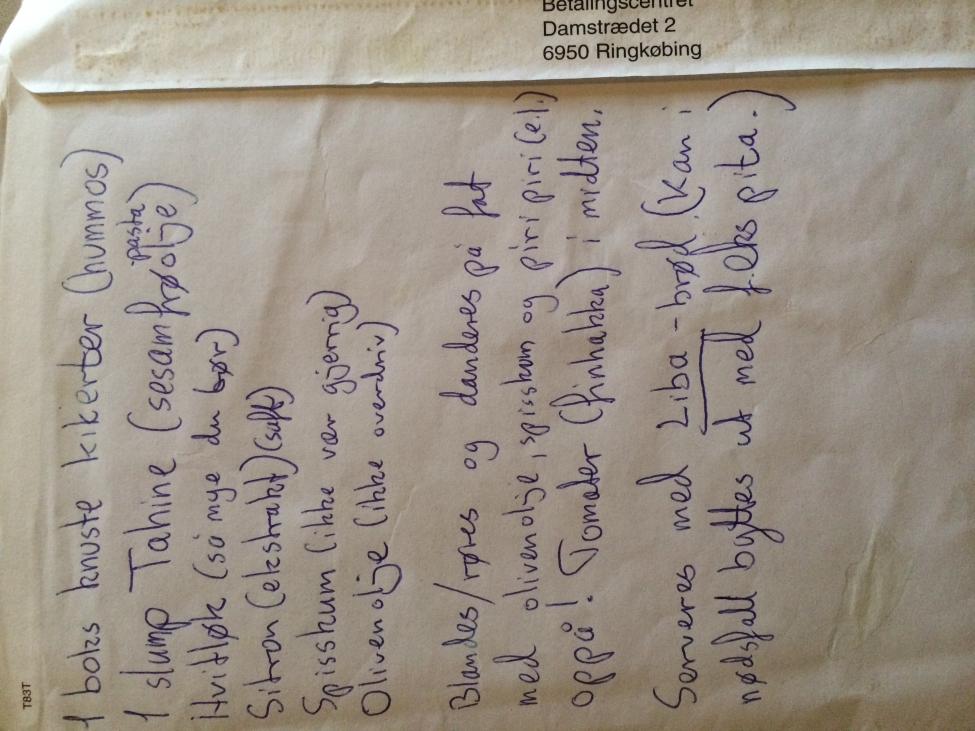 Betalingscentret
Damstrædet 2
6950 Ringkøbing
T83T
1 boks knuste kikerter (hummos)
1 slump Tahine (sesamfrøolje)
-pasta
Hvitløk (så mye du bør)
Sitron (ekstrakt) (saft)
Spisskum (ikke vær gjerrig)
Olivenolje (ikke overdriv)
Blandes/røres og danderes på fat
med olivenolje, spisskum og piri piri (e.l.)
oppå! (Tomater (finhakka) i midten.
Serveres med Liba-brød. (Kan i
nødsfall byttes ut med f.eks pita.)